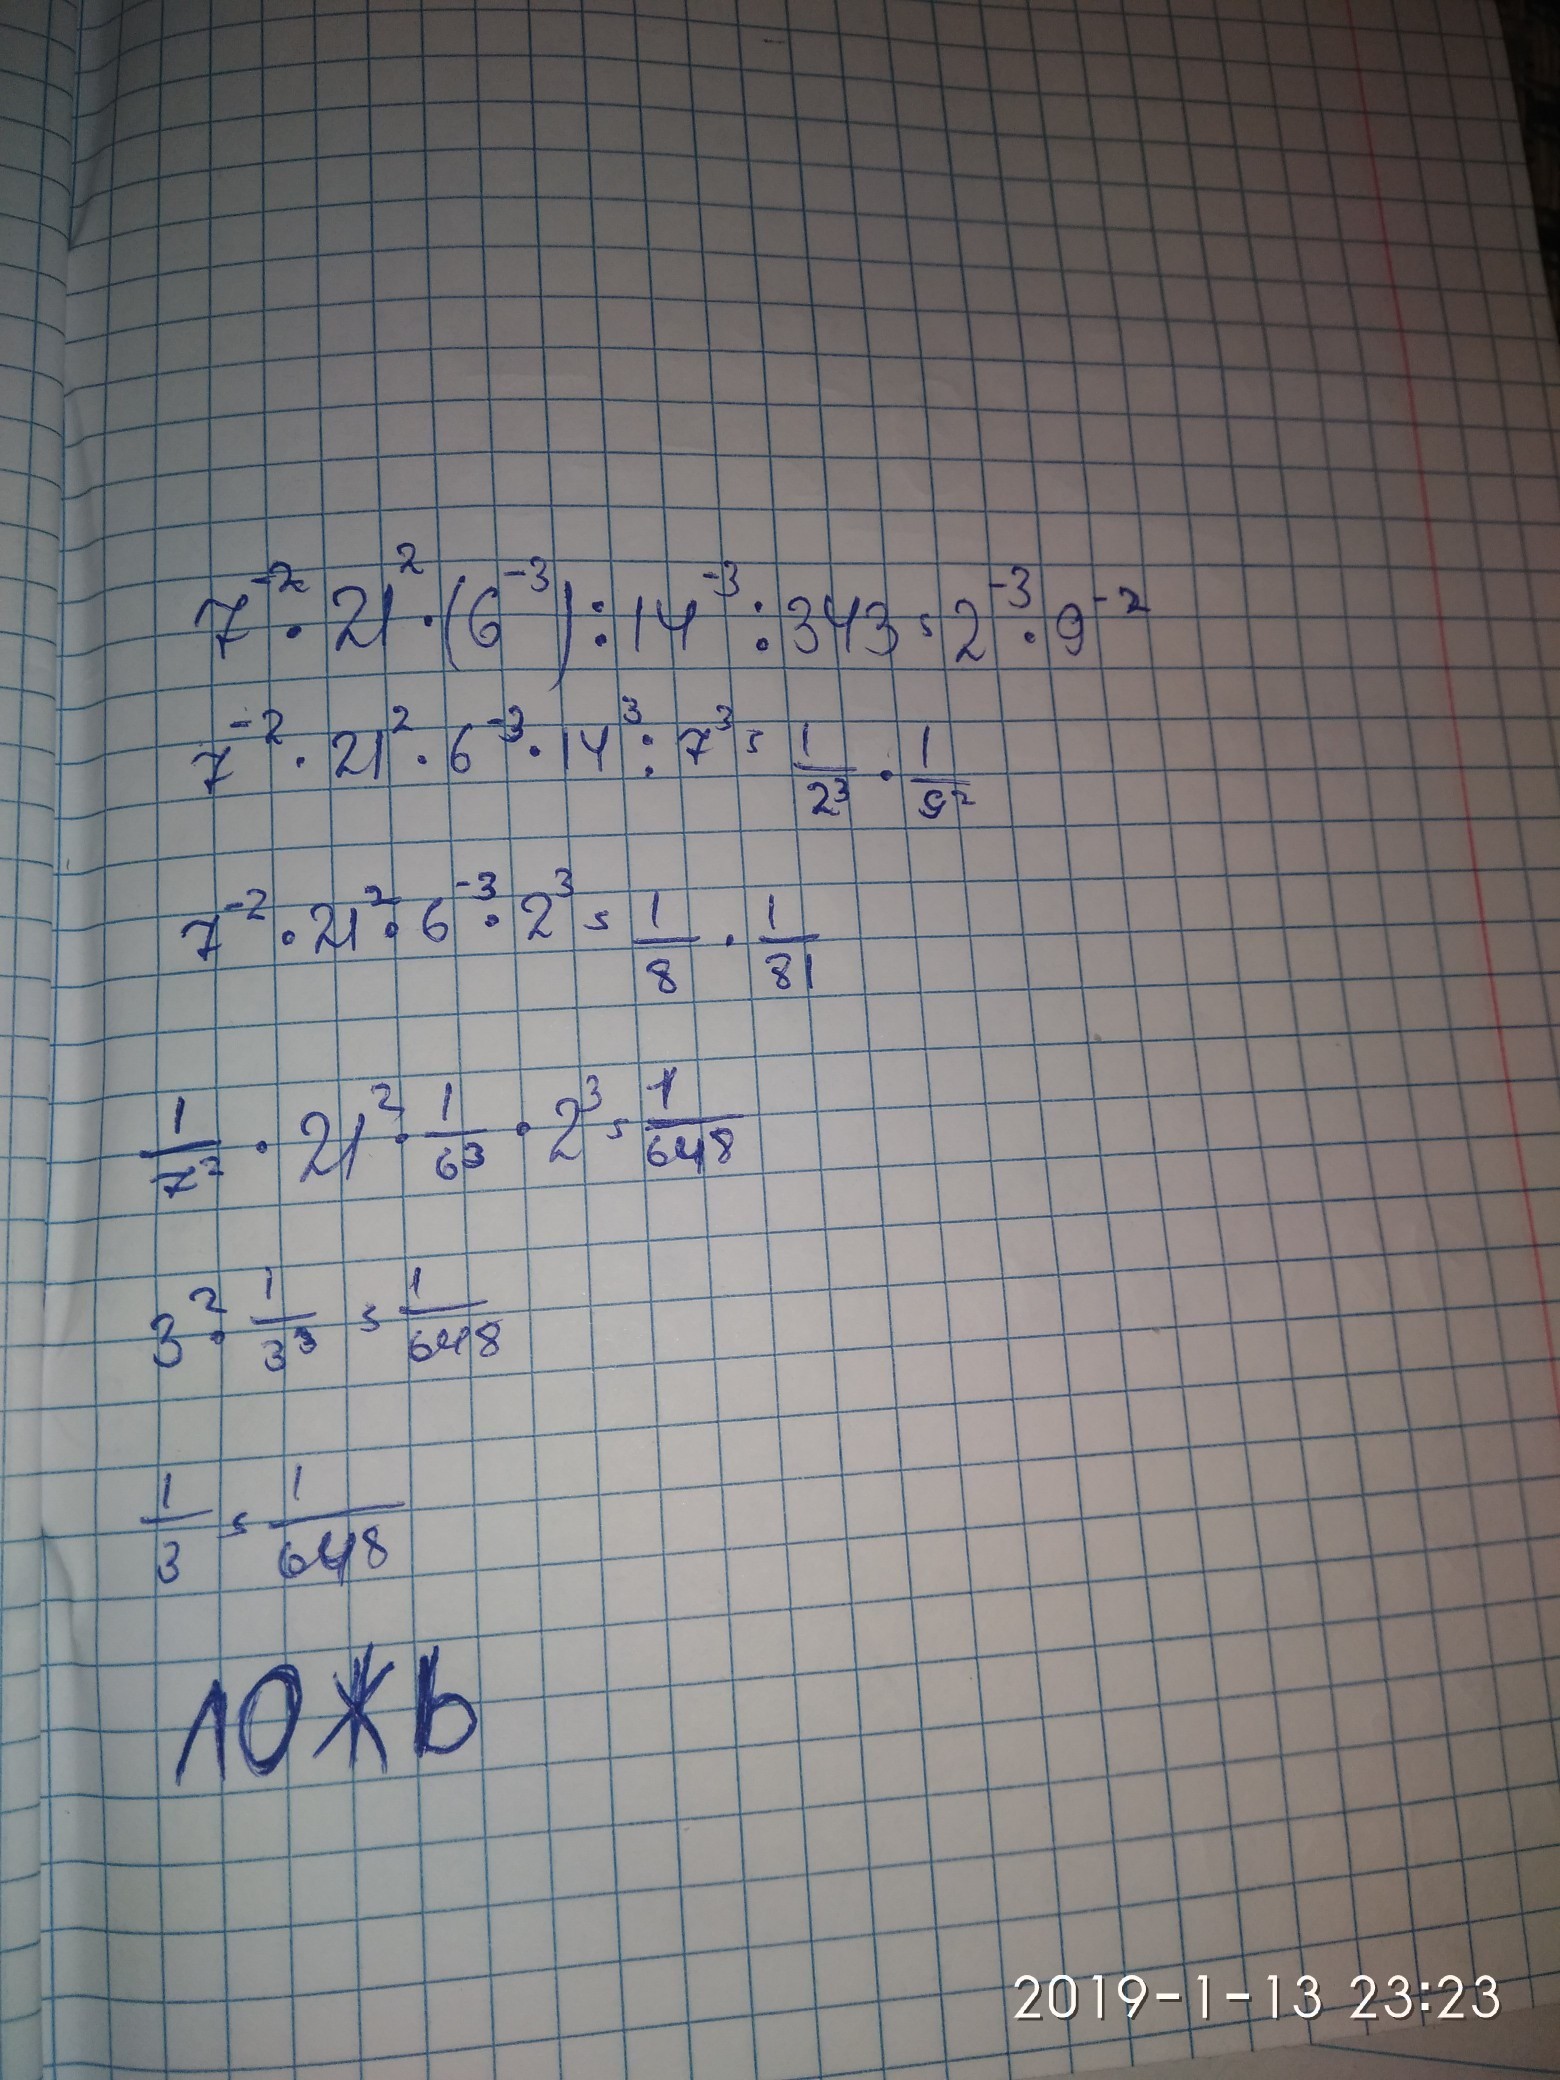 7⁻² · 21² · (6⁻³) : 14⁻³ : 343 = 2⁻³ · 9⁻²
7⁻² · 21² · 6⁻³ · 14³ : 7³ = 1/2³ · 1/9²
7⁻² · 21² · 6⁻³ · 2³ = 1/8 · 1/81
1/7² · 21² · 1/6³ · 2³ = 1/648
3² · 1/3³ = 1/648
1/3 = 1/648
ЛОЖЬ
2019-1-13 23:23